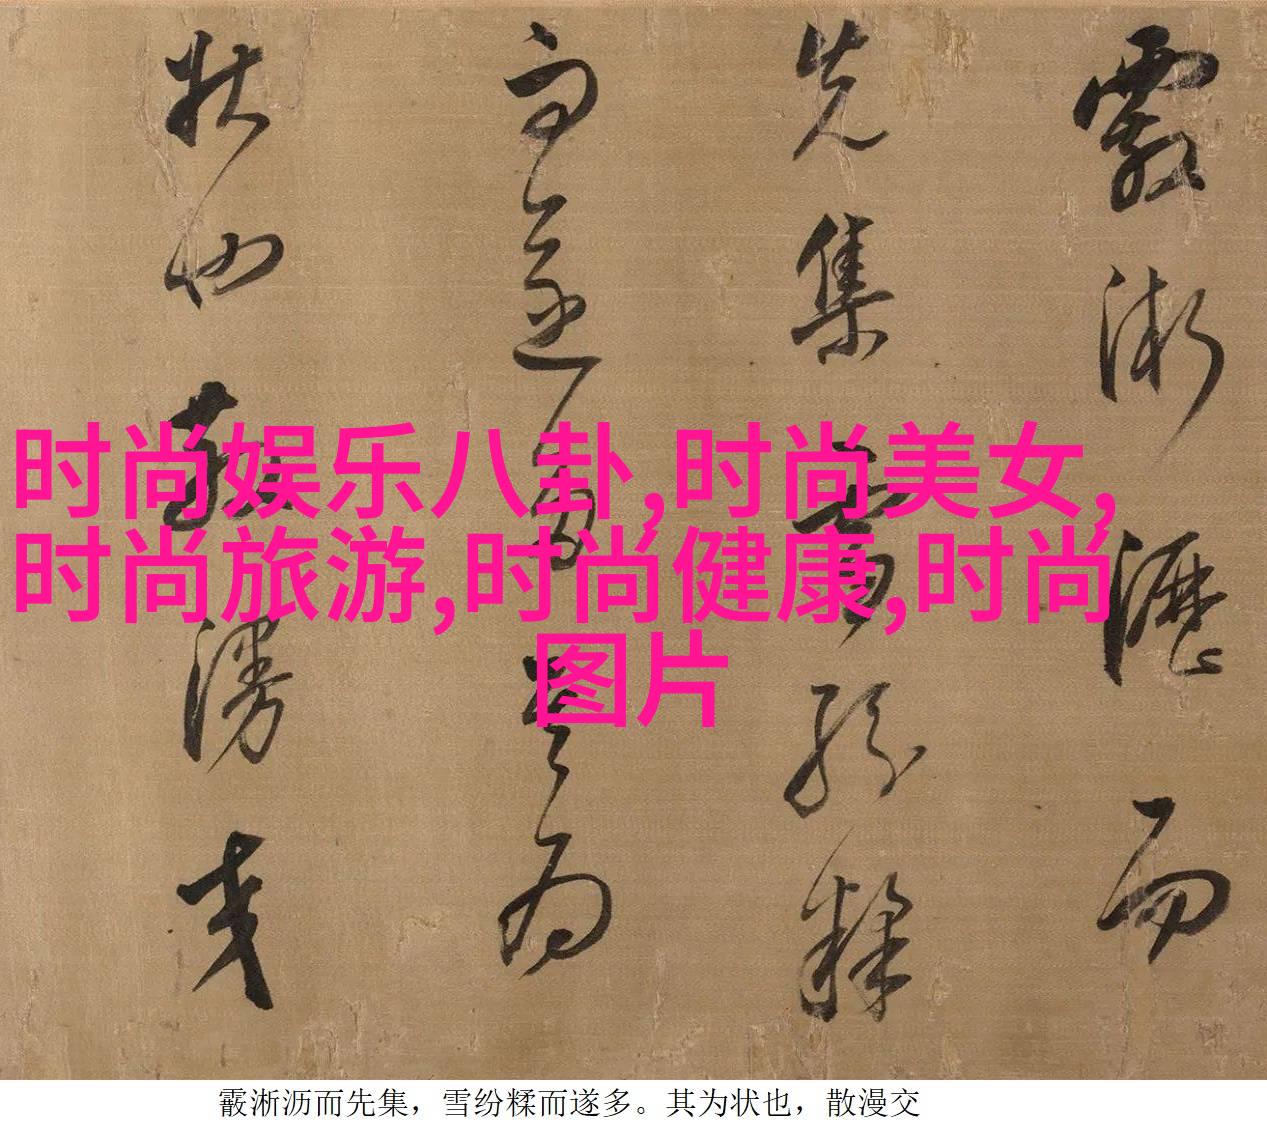 霰淅沥而
先集雪纷糅
而遂多其为
状也散漫交
时尚娱乐八卦,时尚美女,
时尚旅游,时尚健康,时尚
图片
霰淅沥而先集，雪纷糅而遂多。其为状也，散漫交